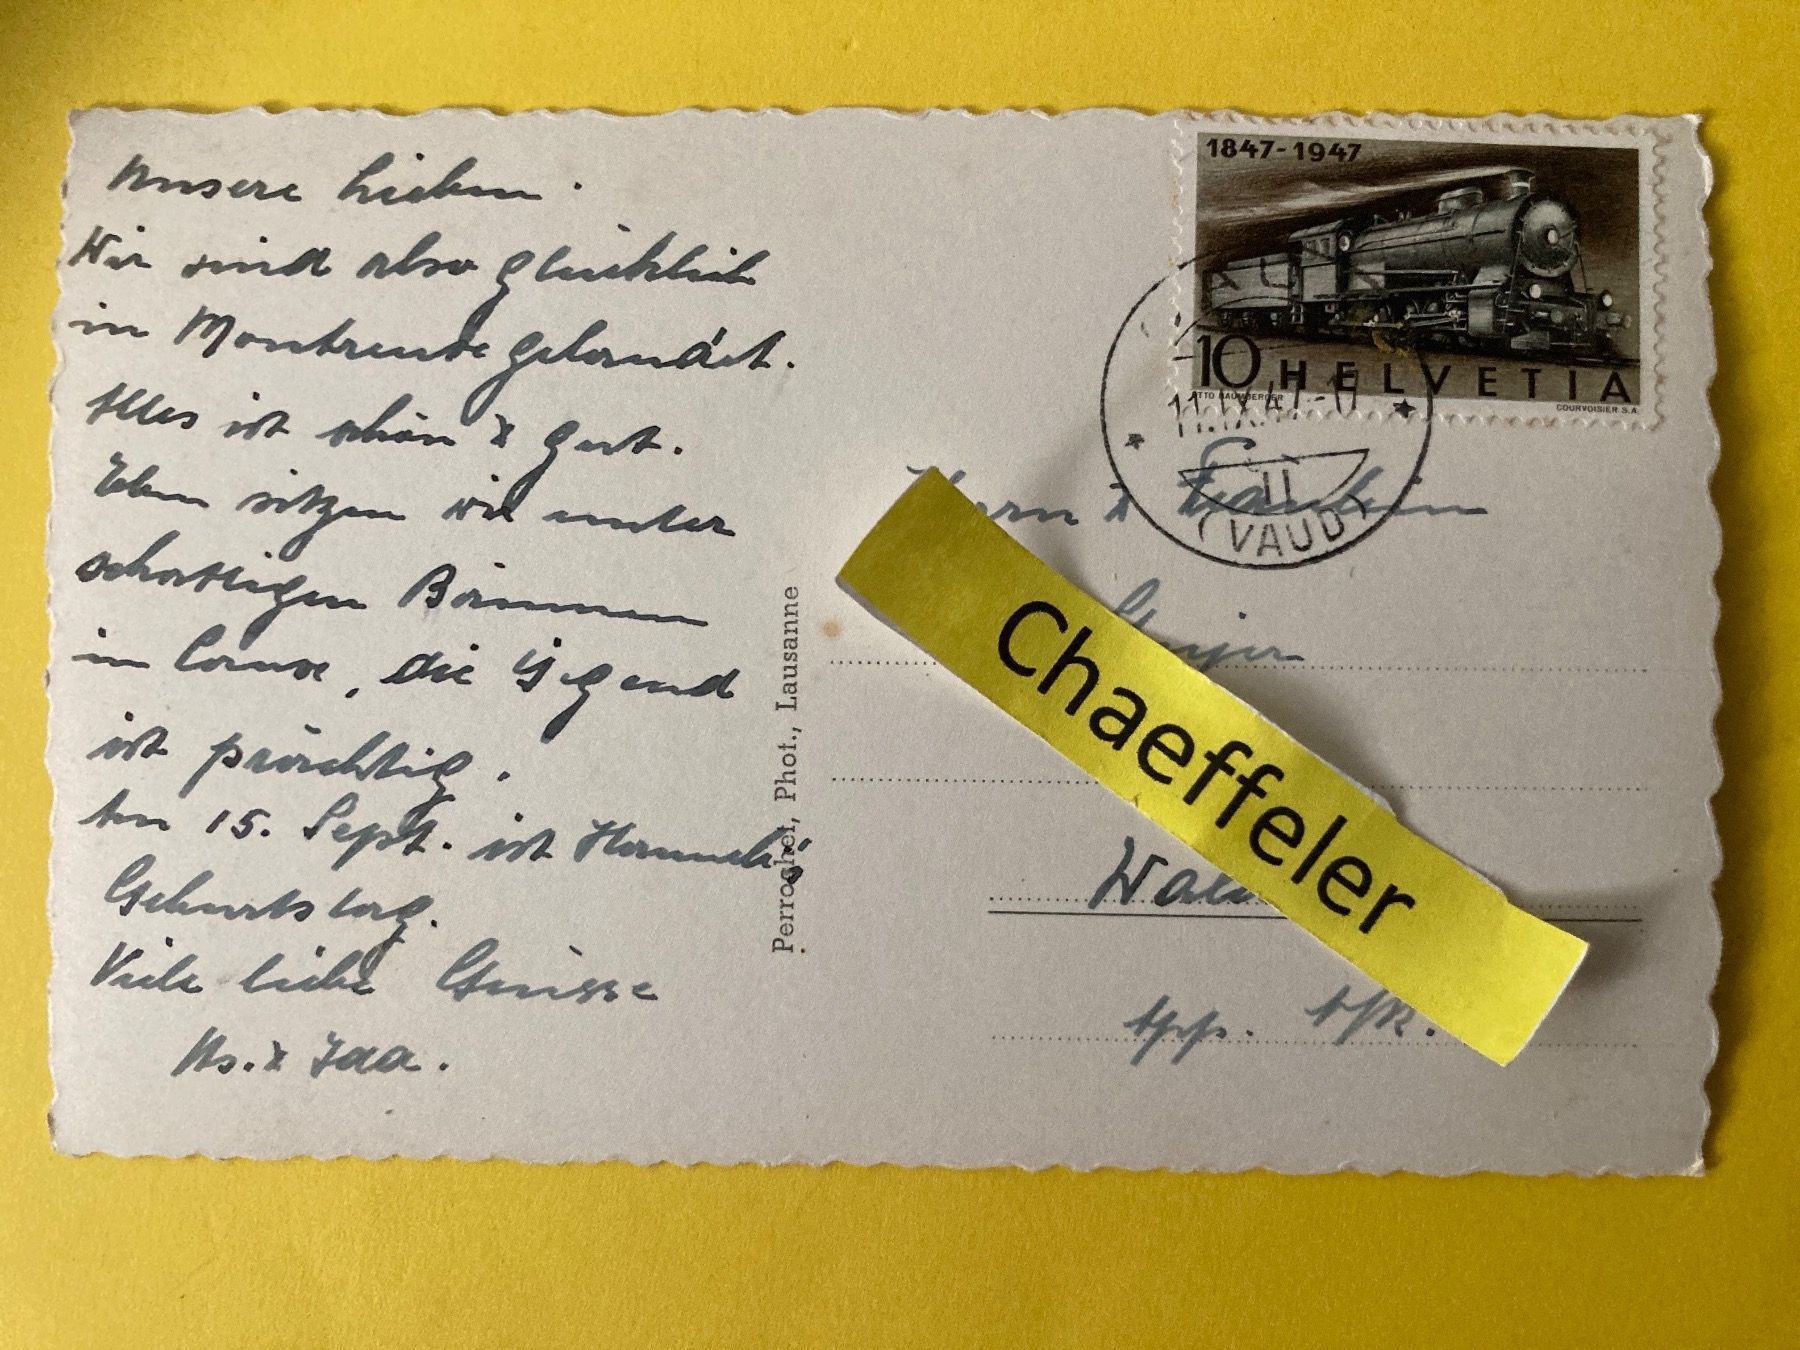 Unsere Lieben.
Wir sind also glücklich
in Montreux gelandet.
Alles ist schön & gut.
Eben sitzen wir unter
schattigen Bäumen
in Caux, die Gegend
ist prächtig.
Am 15. Sept. ist
Geburtstag.
Viele liebe Grüsse
Hs. & Ida.
Perrochet, Phot., Lausanne
1847-1947
10 HELVETIA
OTTO BAUMBERGER COURVOISIER S.A.
11.IX.47-
(VAUD)
& Fräulein
Chaeffeler
App. A/Rh.